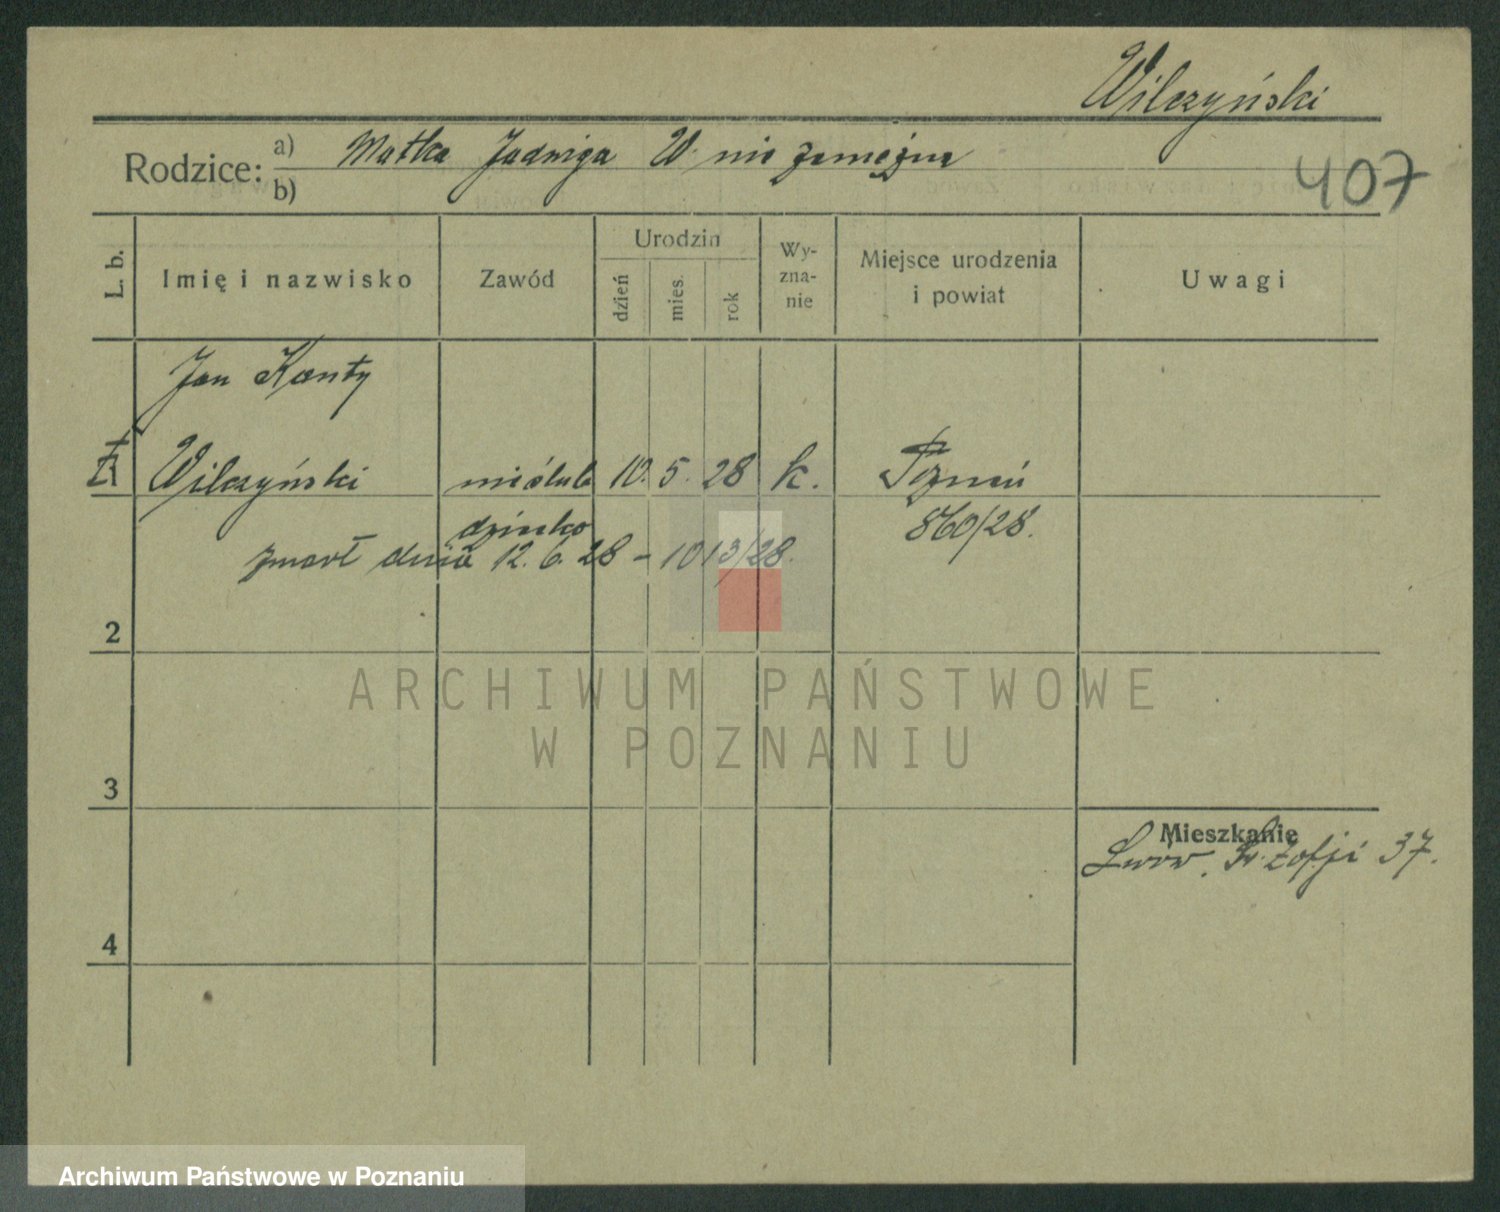 Wilczyński
Rodzice:
a) Matka Jadwiga W. nie zamężna
b)
407
L. b.
Imię i nazwisko
Zawód
Urodzin
dzień
mies.
rok
Wy-
zna-
nie
Miejsce urodzenia
i powiat
Uwagi
Jan Kanty
Wilczyński
nieślub
dziecko
10. 5. 28
k.
Poznań
860/28.
zmarł dnia 12. 6. 28 – 1013/28.
2
3
4
Mieszkanie
Lwów. Św. Zofji 37.
ARCHIWUM PAŃSTWOWE
W POZNANIU
Archiwum Państwowe w Poznaniu